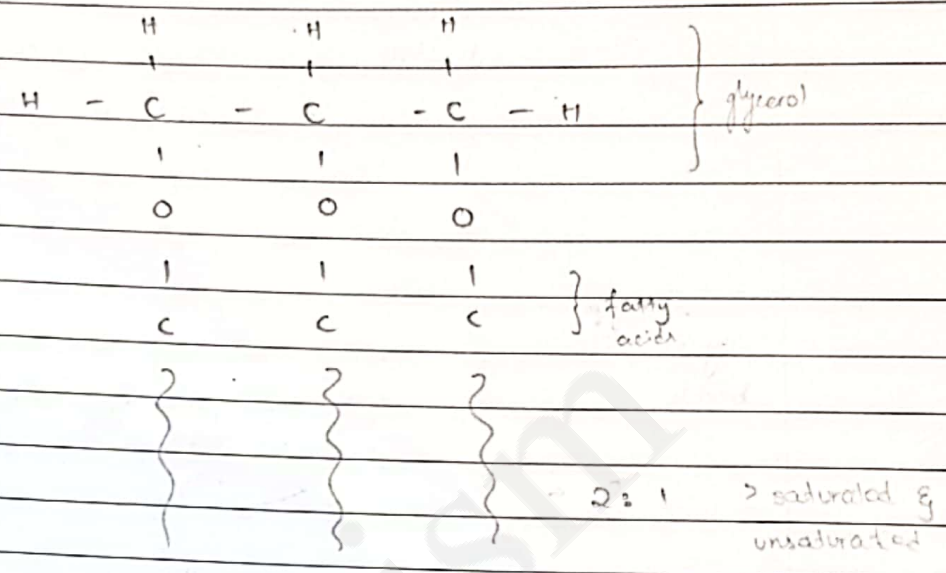 H H H
H - C - C - C - H } glycerol
O O O
C C C } fatty
acids
2:1 > saturated &
unsaturated
ism